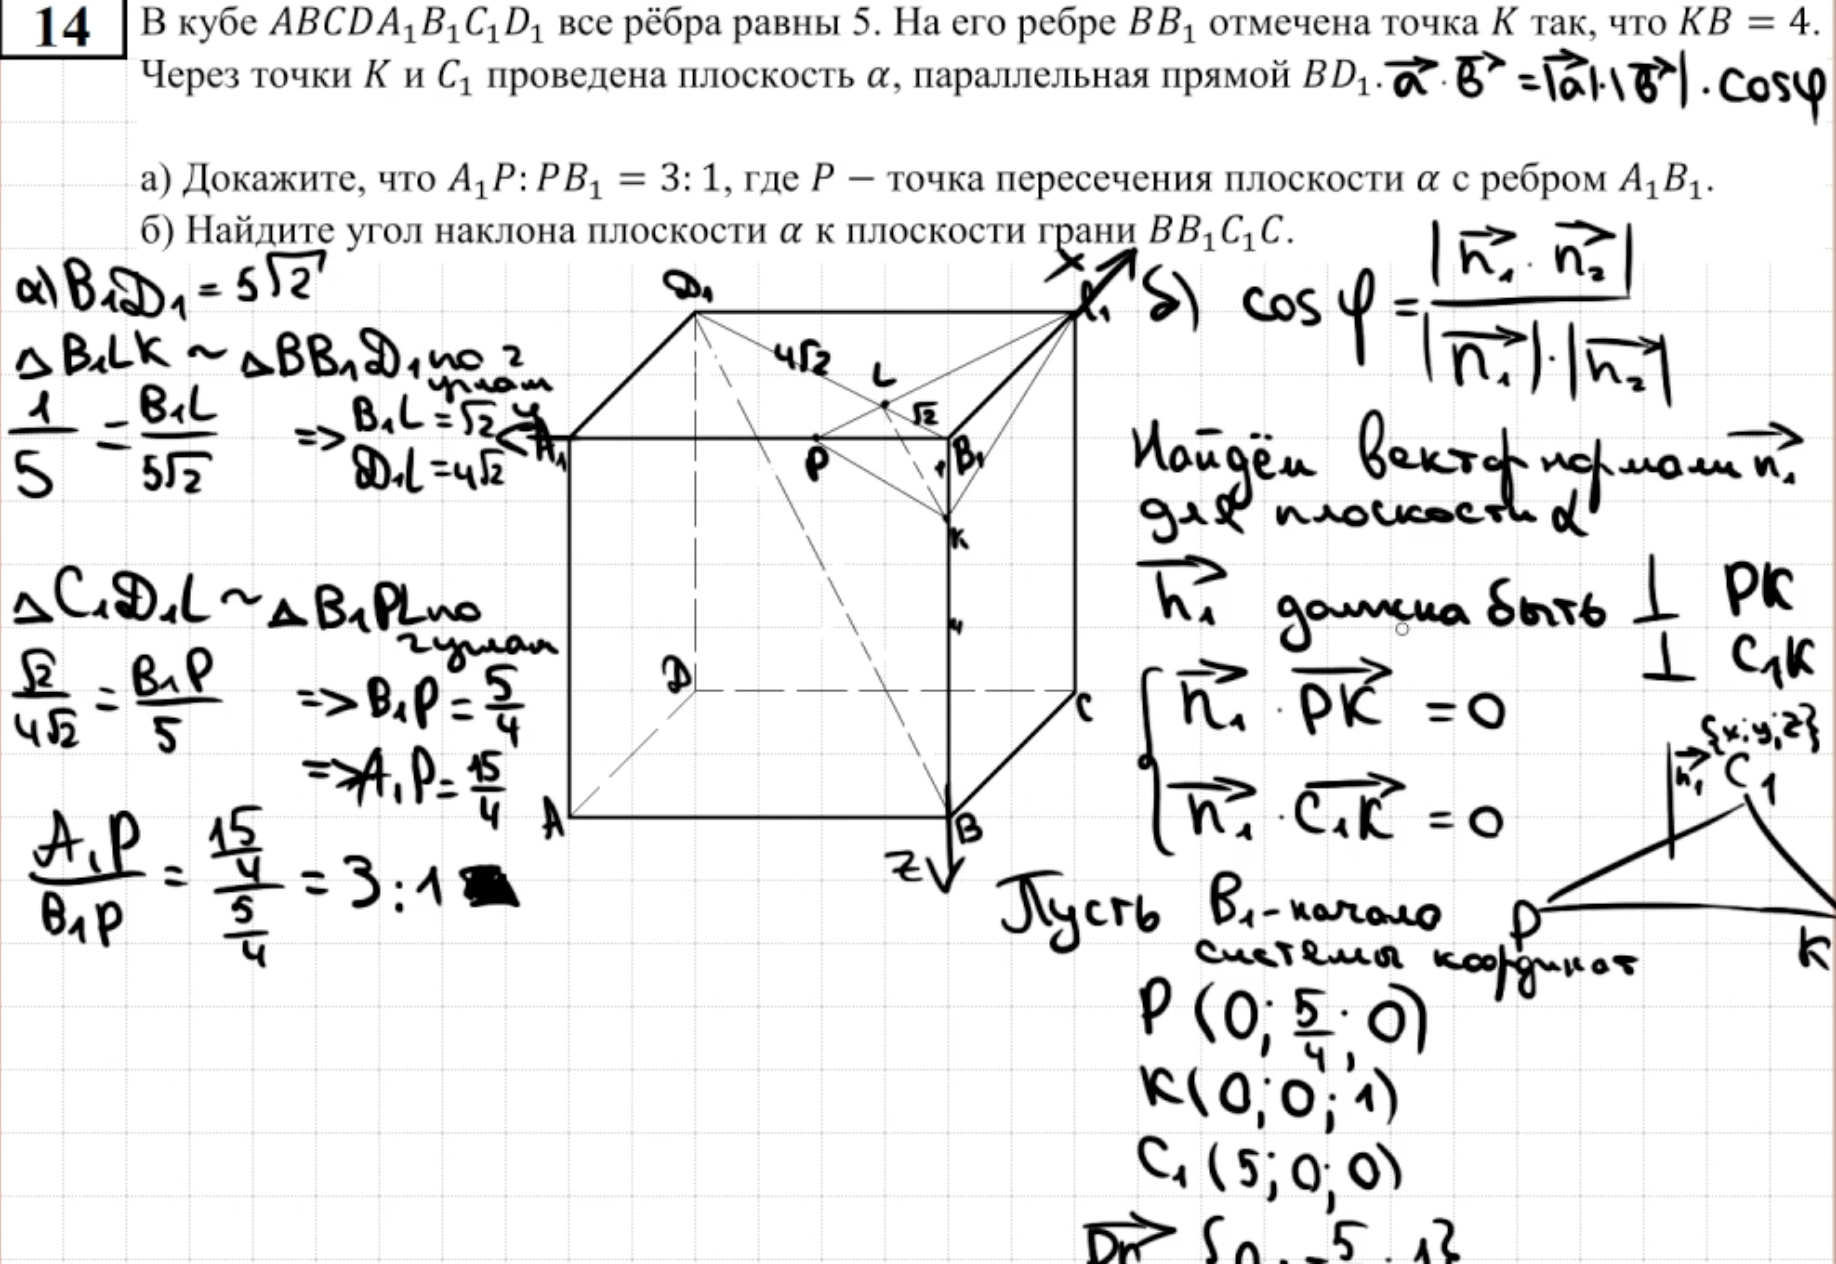 14
В кубе ABCDA₁B₁C₁D₁ все рёбра равны 5. На его ребре BB₁ отмечена точка K так, что KB = 4.
Через точки K и C₁ проведена плоскость α, параллельная прямой BD₁. a⃗ · в⃗ = |a⃗|·|в⃗| · cosφ
а) Докажите, что A₁P: PB₁ = 3: 1, где P – точка пересечения плоскости α с ребром A₁B₁.
б) Найдите угол наклона плоскости α к плоскости грани BB₁C₁C.
а) B₁D₁ = 5√2
△ B₁LK ~ △BB₁D₁ по 2
углам
1/5 = B₁L/5√2 => B₁L = √2
D₁L = 4√2
△C₁D₁L ~ △B₁PL по
2 углам
√2/4√2 = B₁P/5 => B₁P = 5/4
=> A₁P = 15/4
A₁P/B₁P = 15/4 / 5/4 = 3:1
D₁
x
C₁
4√2
L
√2
y
A₁
P
B₁
1
K
4
D
C
A
B
z
б) cos φ = |n₁⃗ · n₂⃗| / |n₁⃗|·|n₂⃗|
Найдём вектор нормали n₁⃗
для плоскости α
n₁⃗ должна быть ⊥ PK
⊥ C₁K
{ n₁⃗ · PK⃗ = 0
n₁⃗ · C₁K⃗ = 0
n₁⃗ {x;y;z}
C₁
P
K
Пусть B₁-начало
системы координат
P (0; 5/4; 0)
K(0; 0; 1)
C₁ (5; 0; 0)